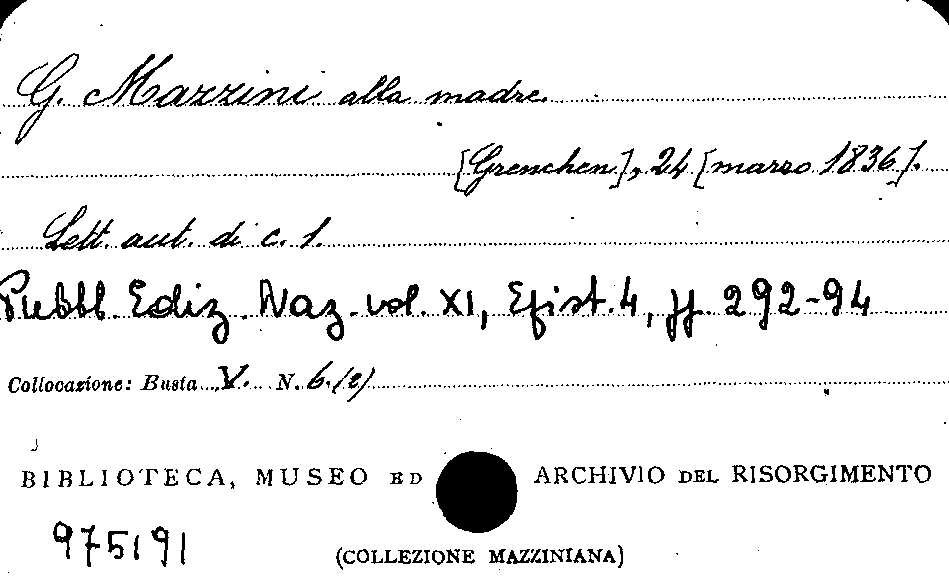 G. Mazzini alla madre.
[Grenchen], 24 [marzo 1836].
Lett. aut. di c. 1.
Pubbl. Ediz. Naz. vol. XI, Epist. 4, pp. 292-94
Collocazione: Busta V. N. 6.(2)
BIBLIOTECA, MUSEO ED ARCHIVIO DEL RISORGIMENTO
975191
(COLLEZIONE MAZZINIANA)